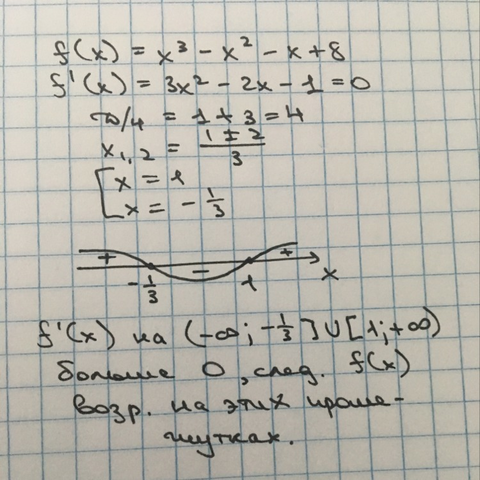 f(x) = x³ - x² - x + 8
f'(x) = 3x² - 2x - 1 = 0
D/4 = 1 + 3 = 4
x₁,₂ = (1 ± 2)/3
[x = 1
x = - 1/3
+ - +
- 1/3 1 x
f'(x) на (-∞; -1/3] ∪ [1; +∞)
больше 0, след. f(x)
возр. на этих проме-
жутках.